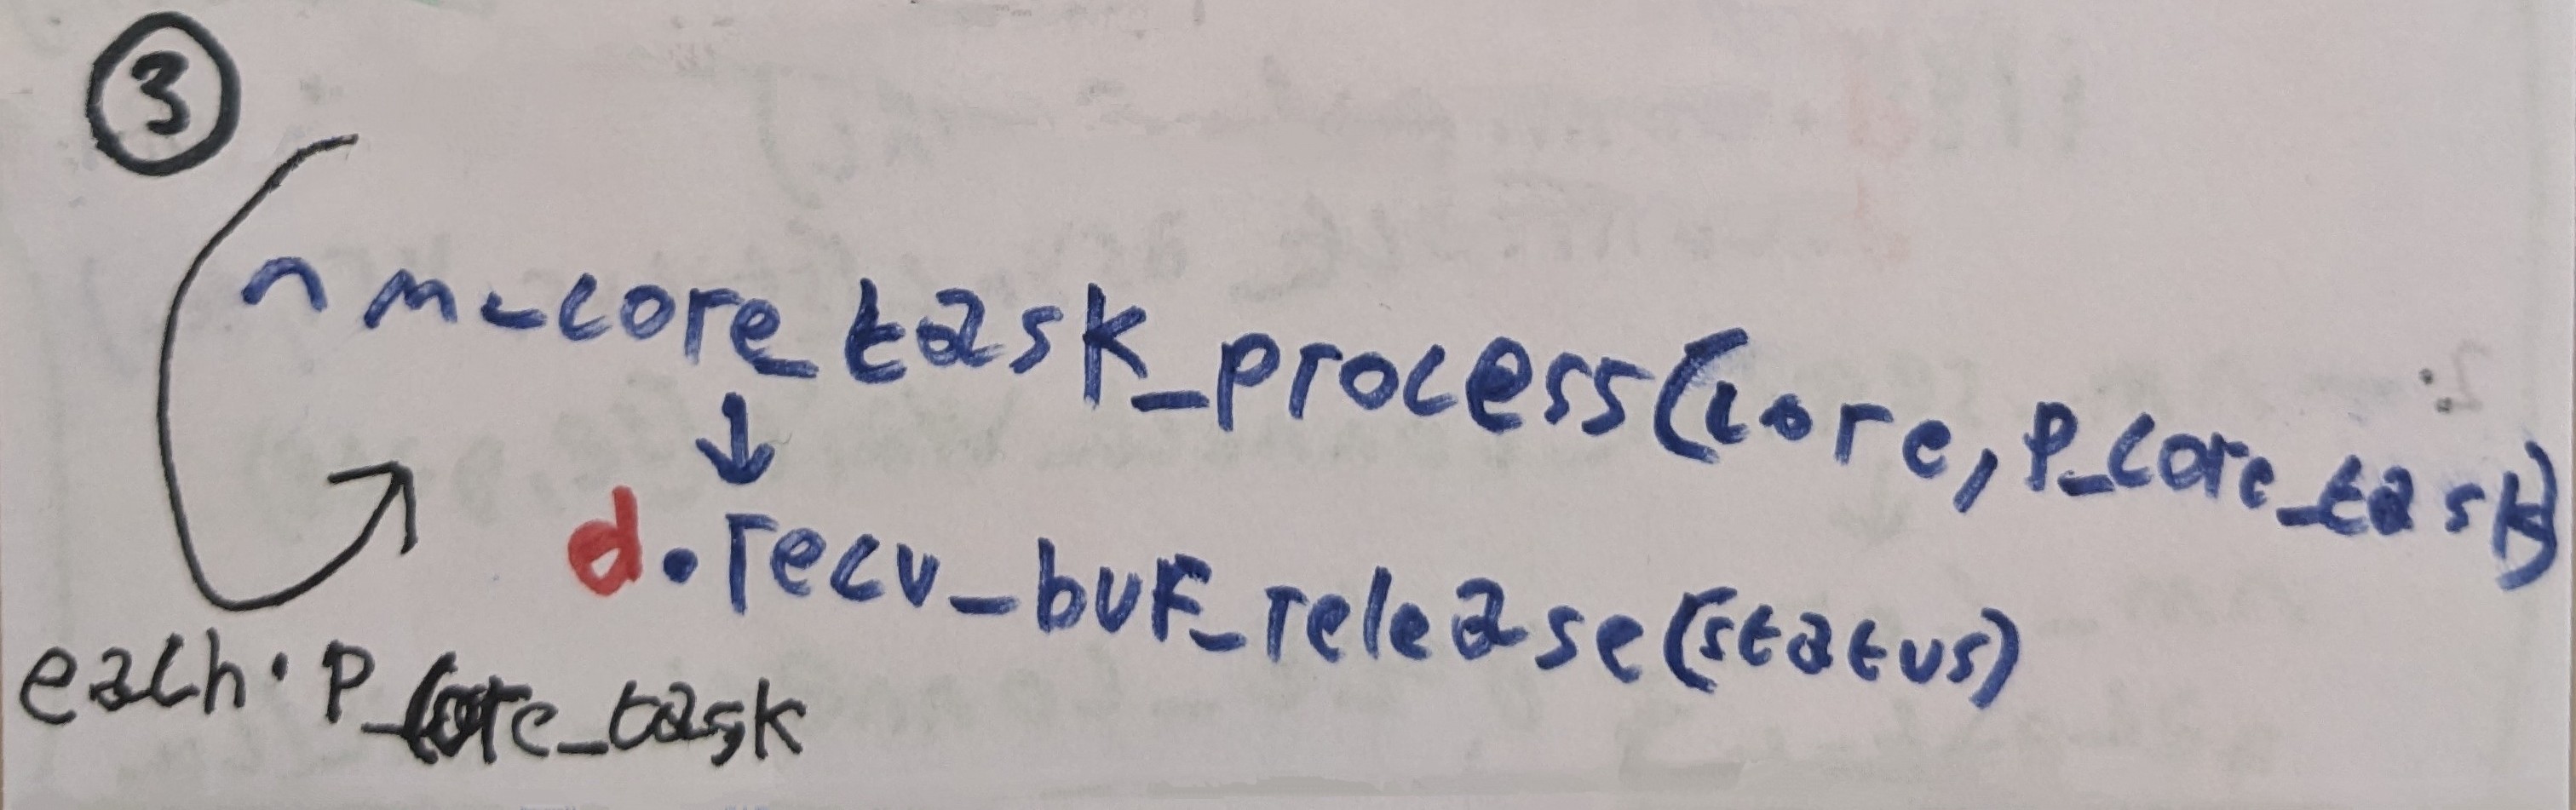 3
nm_core_task_process(core, p_core_task)
↓
d.recv_buf_release(status)
each: p_core_task